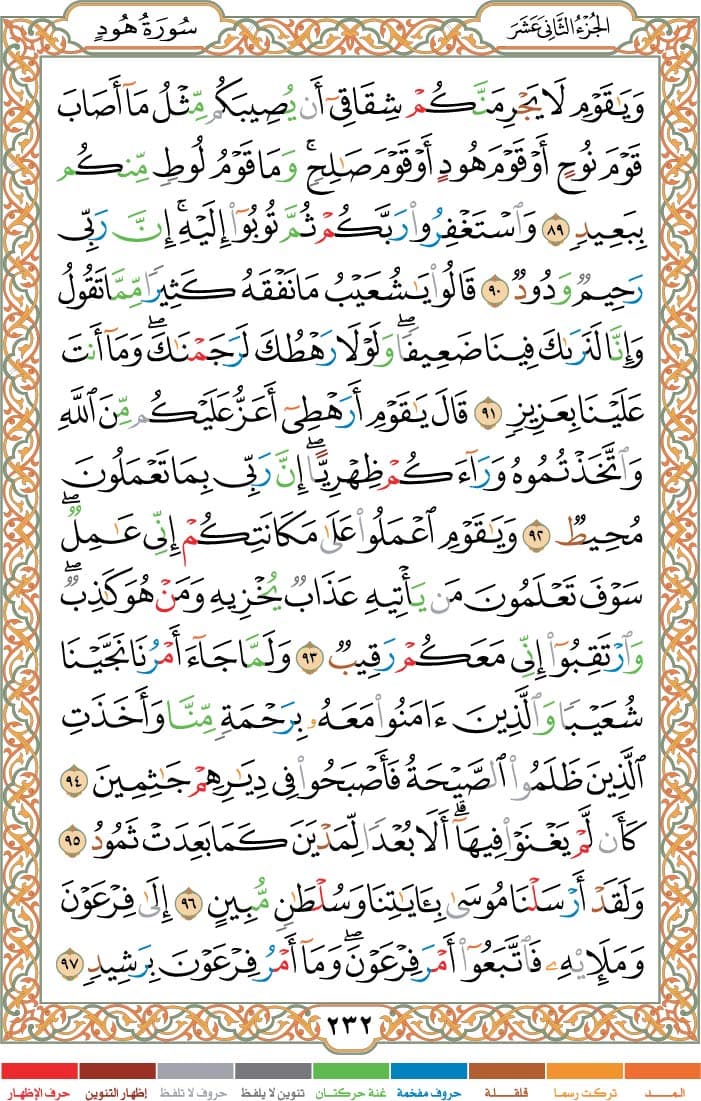 الجُزْءُ الثَّانِي عَشَرَ
سُورَةُ هُودٍ
وَيَٰقَوْمِ لَا يَجْرِمَنَّكُمْ شِقَاقِىٓ أَن يُصِيبَكُم مِّثْلُ مَآ أَصَابَ
قَوْمَ نُوحٍ أَوْ قَوْمَ هُودٍ أَوْ قَوْمَ صَٰلِحٍ ۚ وَمَا قَوْمُ لُوطٍ مِّنكُم
بِبَعِيدٍ ٨٩ وَٱسْتَغْفِرُوا۟ رَبَّكُمْ ثُمَّ تُوبُوٓا۟ إِلَيْهِ ۚ إِنَّ رَبِّى
رَحِيمٌ وَدُودٌ ٩٠ قَالُوا۟ يَٰشُعَيْبُ مَا نَفْقَهُ كَثِيرًا مِّمَّا تَقُولُ
وَإِنَّا لَنَرَىٰكَ فِينَا ضَعِيفًا ۖ وَلَوْلَا رَهْطُكَ لَرَجَمْنَٰكَ ۖ وَمَآ أَنتَ
عَلَيْنَا بِعَزِيزٍ ٩١ قَالَ يَٰقَوْمِ أَرَهْطِىٓ أَعَزُّ عَلَيْكُم مِّنَ ٱللَّهِ
وَٱتَّخَذْتُمُوهُ وَرَآءَكُمْ ظِهْرِيًّا ۖ إِنَّ رَبِّى بِمَا تَعْمَلُونَ
مُحِيطٌ ٩٢ وَيَٰقَوْمِ ٱعْمَلُوا۟ عَلَىٰ مَكَانَتِكُمْ إِنِّى عَٰمِلٌ ۖ
سَوْفَ تَعْلَمُونَ مَن يَأْتِيهِ عَذَابٌ يُخْزِيهِ وَمَنْ هُوَ كَٰذِبٌ ۖ
وَٱرْتَقِبُوٓا۟ إِنِّى مَعَكُمْ رَقِيبٌ ٩٣ وَلَمَّا جَآءَ أَمْرُنَا نَجَّيْنَا
شُعَيْبًا وَٱلَّذِينَ ءَامَنُوا۟ مَعَهُۥ بِرَحْمَةٍ مِّنَّا وَأَخَذَتِ
ٱلَّذِينَ ظَلَمُوا۟ ٱلصَّيْحَةُ فَأَصْبَحُوا۟ فِى دِيَٰرِهِمْ جَٰثِمِينَ ٩٤
كَأَن لَّمْ يَغْنَوْا۟ فِيهَآ ۗ أَلَا بُعْدًا لِّمَدْيَنَ كَمَا بَعِدَتْ ثَمُودُ ٩٥
وَلَقَدْ أَرْسَلْنَا مُوسَىٰ بِـَٔايَٰتِنَا وَسُلْطَٰنٍ مُّبِينٍ ٩٦ إِلَىٰ فِرْعَوْنَ
وَمَلَإِي۟هِۦ فَٱتَّبَعُوٓا۟ أَمْرَ فِرْعَوْنَ ۖ وَمَآ أَمْرُ فِرْعَوْنَ بِرَشِيدٍ ٩٧
٢٣٢
المــــد تركت رسما قلقـــلة حروف مفخمة غنة حركتـان تنوين لا يلفظ حروف لا تلفظ إظهار التنوين حرف الإظهار